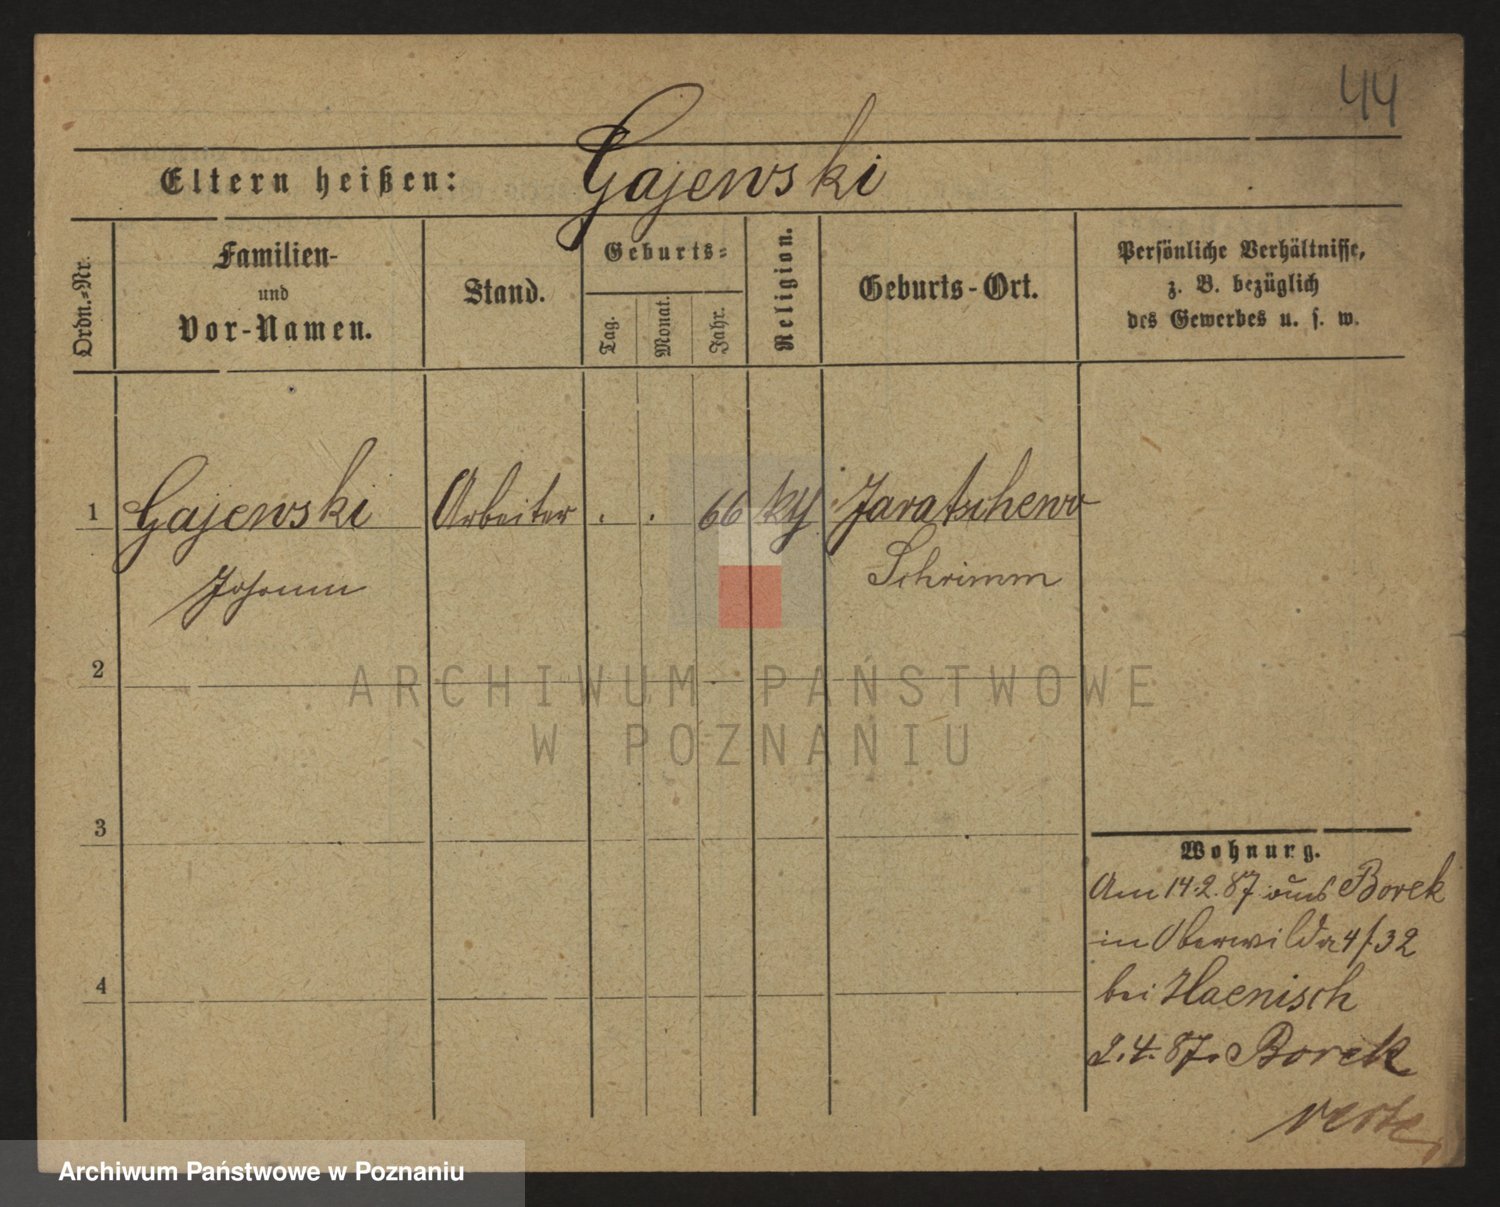 44
Eltern heißen: Gajewski
Ordn.-Nr.
Familien-
und
Vor-Namen.
Stand.
Geburts-
Tag.
Monat.
Jahr.
Religion.
Geburts-Ort.
Persönliche Verhältnisse,
z. B. bezüglich
des Gewerbes u. s. w.
1 Gajewski Arbeiter . . 66 Jaratschewo
Johann Schrimm
2
3
4
Wohnung.
Am 14.2.87 aus Borek
in Oberwilda 4/32
bei Haenisch
2.4.87. Borek
verte
ARCHIWUM PAŃSTWOWE
W POZNANIU
Archiwum Państwowe w Poznaniu